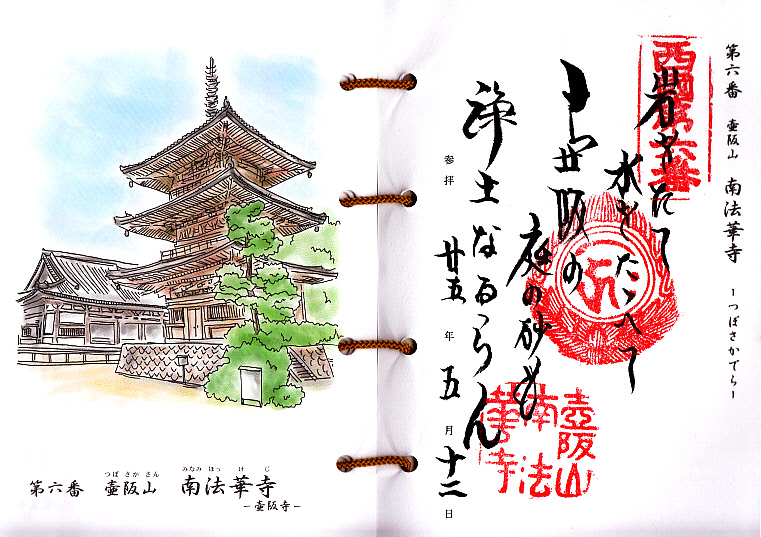 第六番 壺阪山 南法華寺 －つぼさかでら－
西国第六番
岩をたて
水をたゝへて
阪の
庭の砂も
浄土なるらん
参拝 廿五年五月十二日
壺阪山
南法
華寺
つぼさかさん みなみほっけじ
第六番 壺阪山 南法華寺
－壺阪寺－